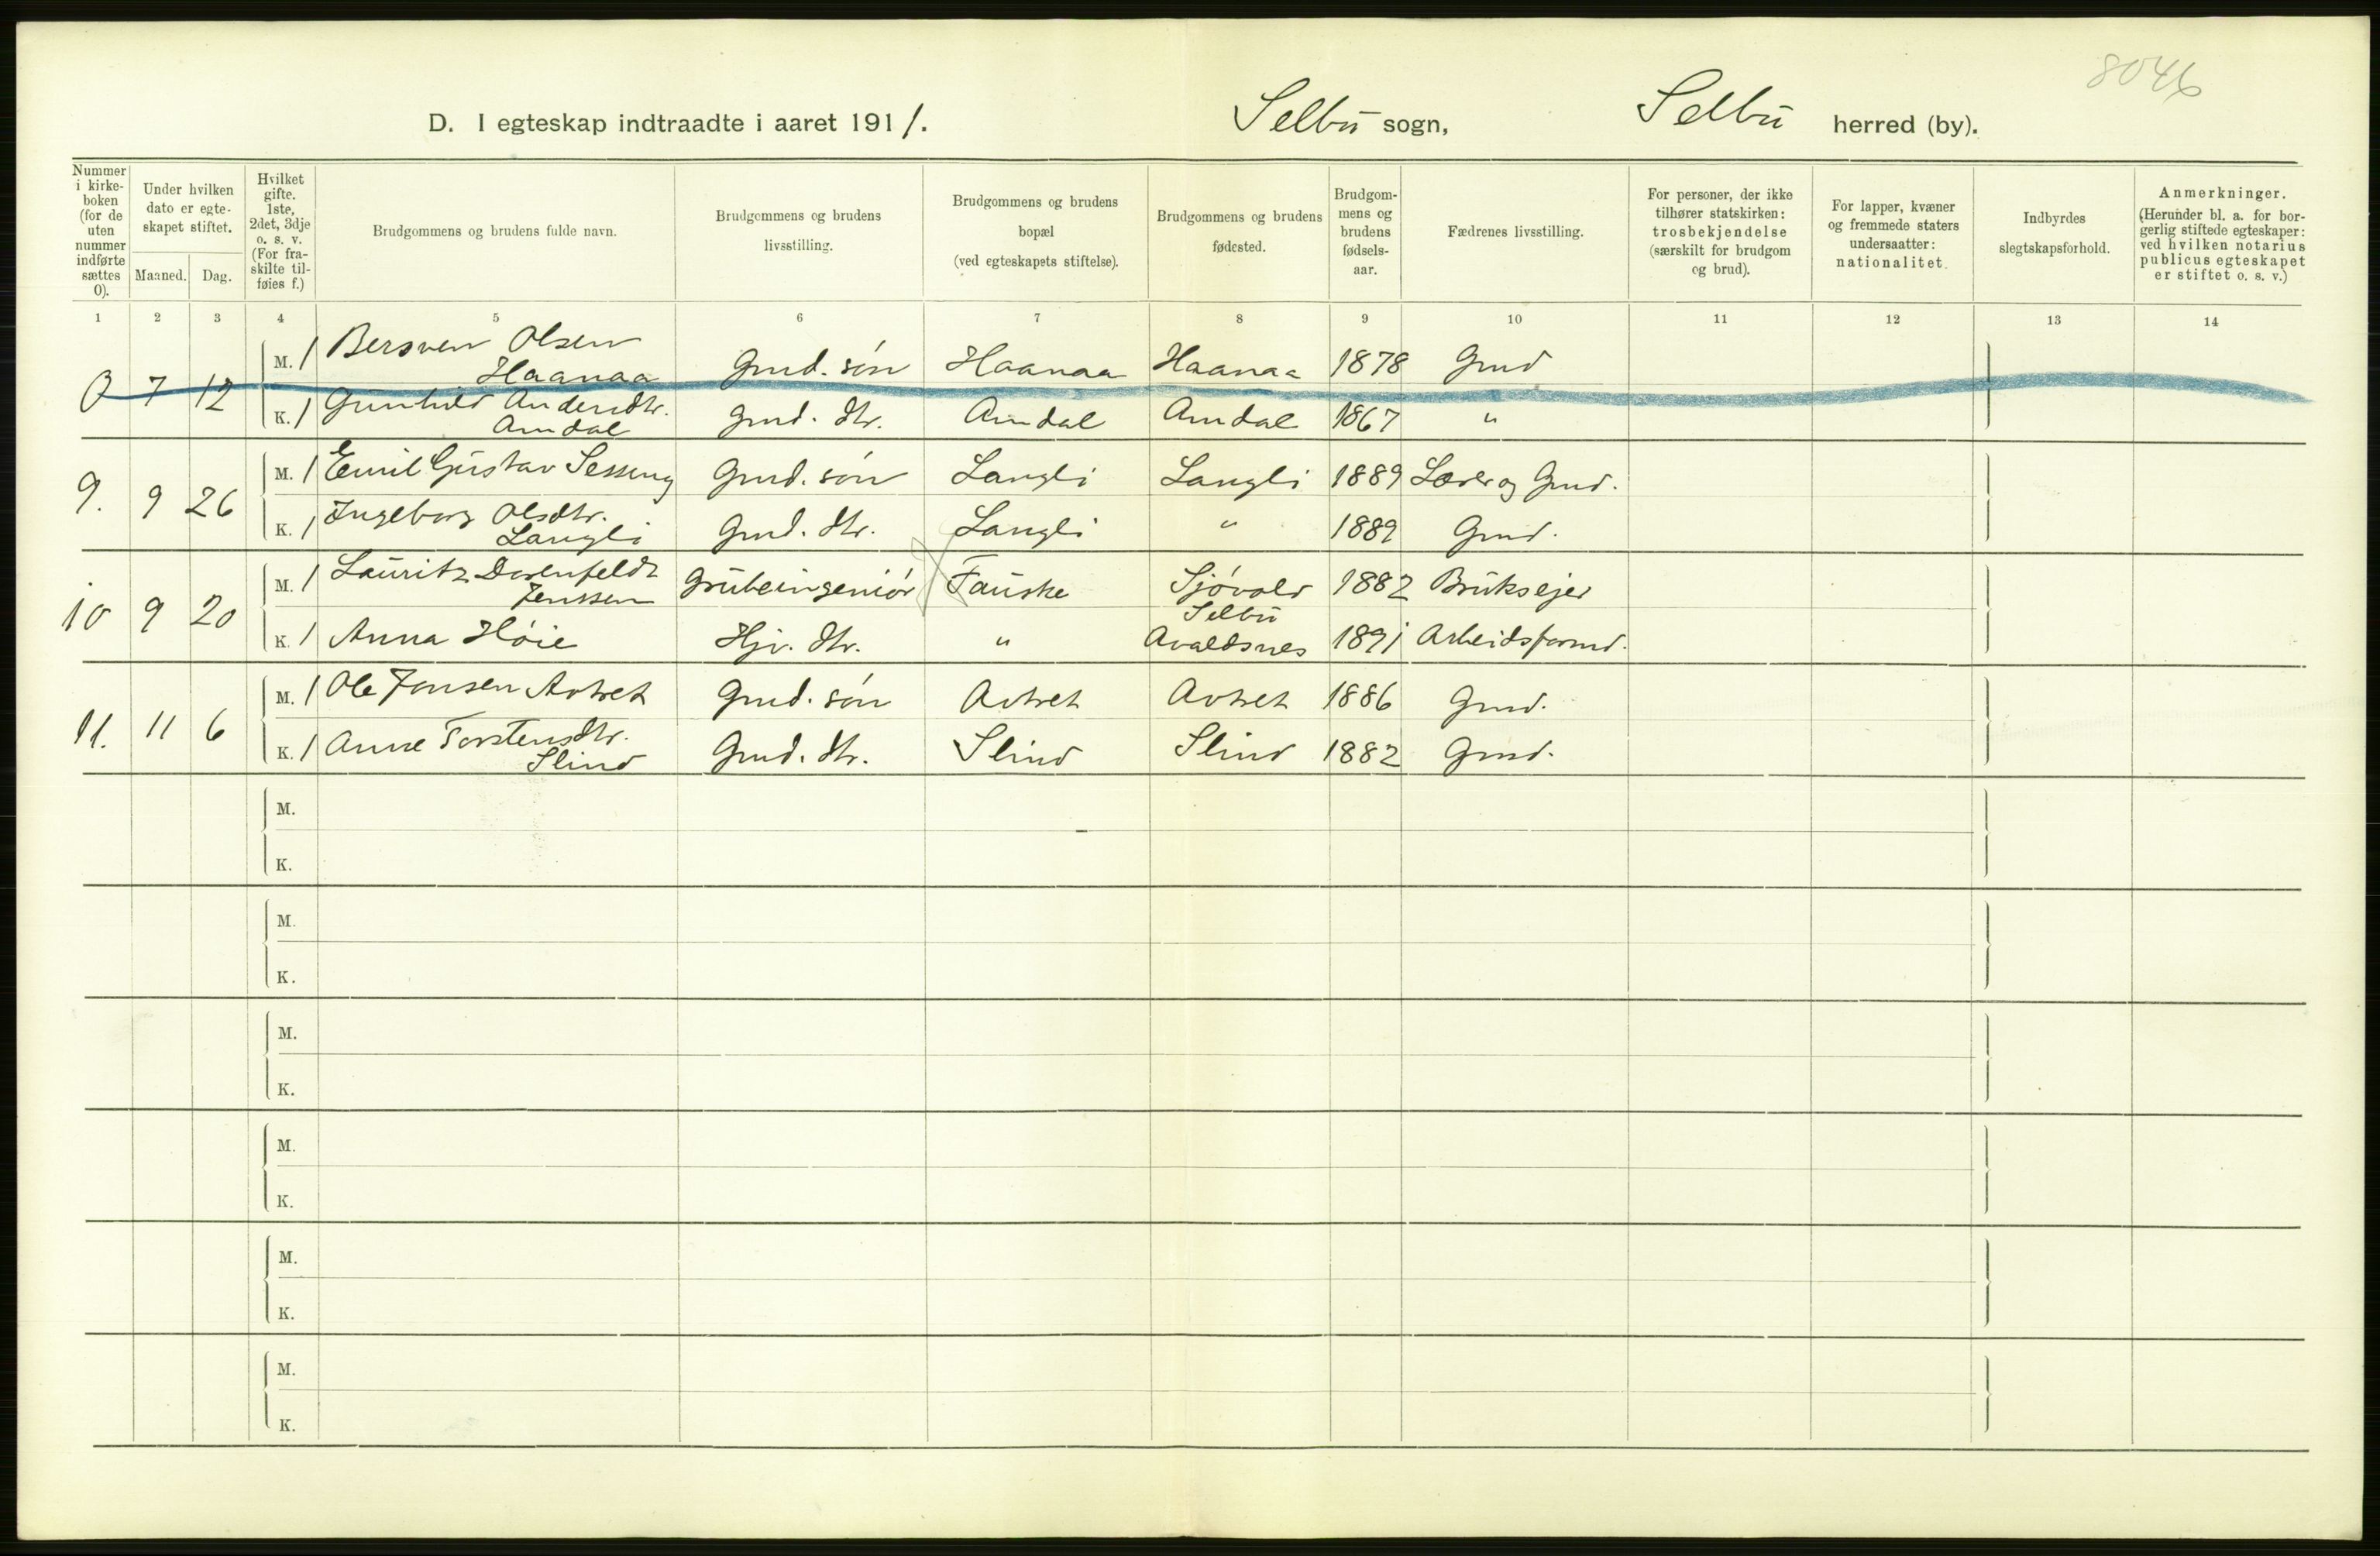 8046
D. I egteskap indtraadte i aaret 1911. Selbu sogn, Selbu herred (by).
Nummer i kirkeboken (for de uten nummer indførte sættes 0).
Under hvilken dato er egteskapet stiftet.
Maaned. Dag.
Hvilket gifte. 1ste, 2det, 3dje o. s. v. (For fraskilte tilføies f.)
Brudgommens og brudens fulde navn.
Brudgommens og brudens livsstilling.
Brudgommens og brudens bopæl (ved egteskapets stiftelse).
Brudgommens og brudens fødested.
Brudgommens og brudens fødselsaar.
Fædrenes livsstilling.
For personer, der ikke tilhører statskirken: trosbekjendelse (særskilt for brudgom og brud).
For lapper, kvæner og fremmede staters undersaatter: nationalitet.
Indbyrdes slegtskapsforhold.
Anmerkninger. (Herunder bl. a. for borgerlig stiftede egteskaper: ved hvilken notarius publicus egteskapet er stiftet o. s. v.)
1 2 3 4 5 6 7 8 9 10 11 12 13 14
0 7 12
M. 1 Bersven Olsen Haanaa Grmd. søn Haanaa Haanaa 1878 Grmd
K. 1 Gunhild Andersdtr. Amdal Grmd. dtr. Amdal Amdal 1867 "
9. 9 26
M. 1 Emil Gustav Sesseng Grmd. søn Langli Langli 1889 Lærer og Grmd.
K. 1 Ingeborg Olsdtr. Langli Grmd. dtr. Langli " 1889 Grmd.
10 9 20
M. 1 Lauritz Dorenfeldt Jenssen Grubeingeniør Fauske Sjøvold Selbu 1882 Bruksejer
K. 1 Anna Høie Hjv. dtr. " Avaldsnes 1891 Arbeidsformd.
11. 11 6
M. 1 Ole Jonsen Avtret Grmd. søn Avtret Avtret 1886 Grmd.
K. 1 Anne Torstensdtr. Slind Grmd. dtr. Slind Slind 1882 Grmd.
M.
K.
M.
K.
M.
K.
M.
K.
M.
K.
M.
K.